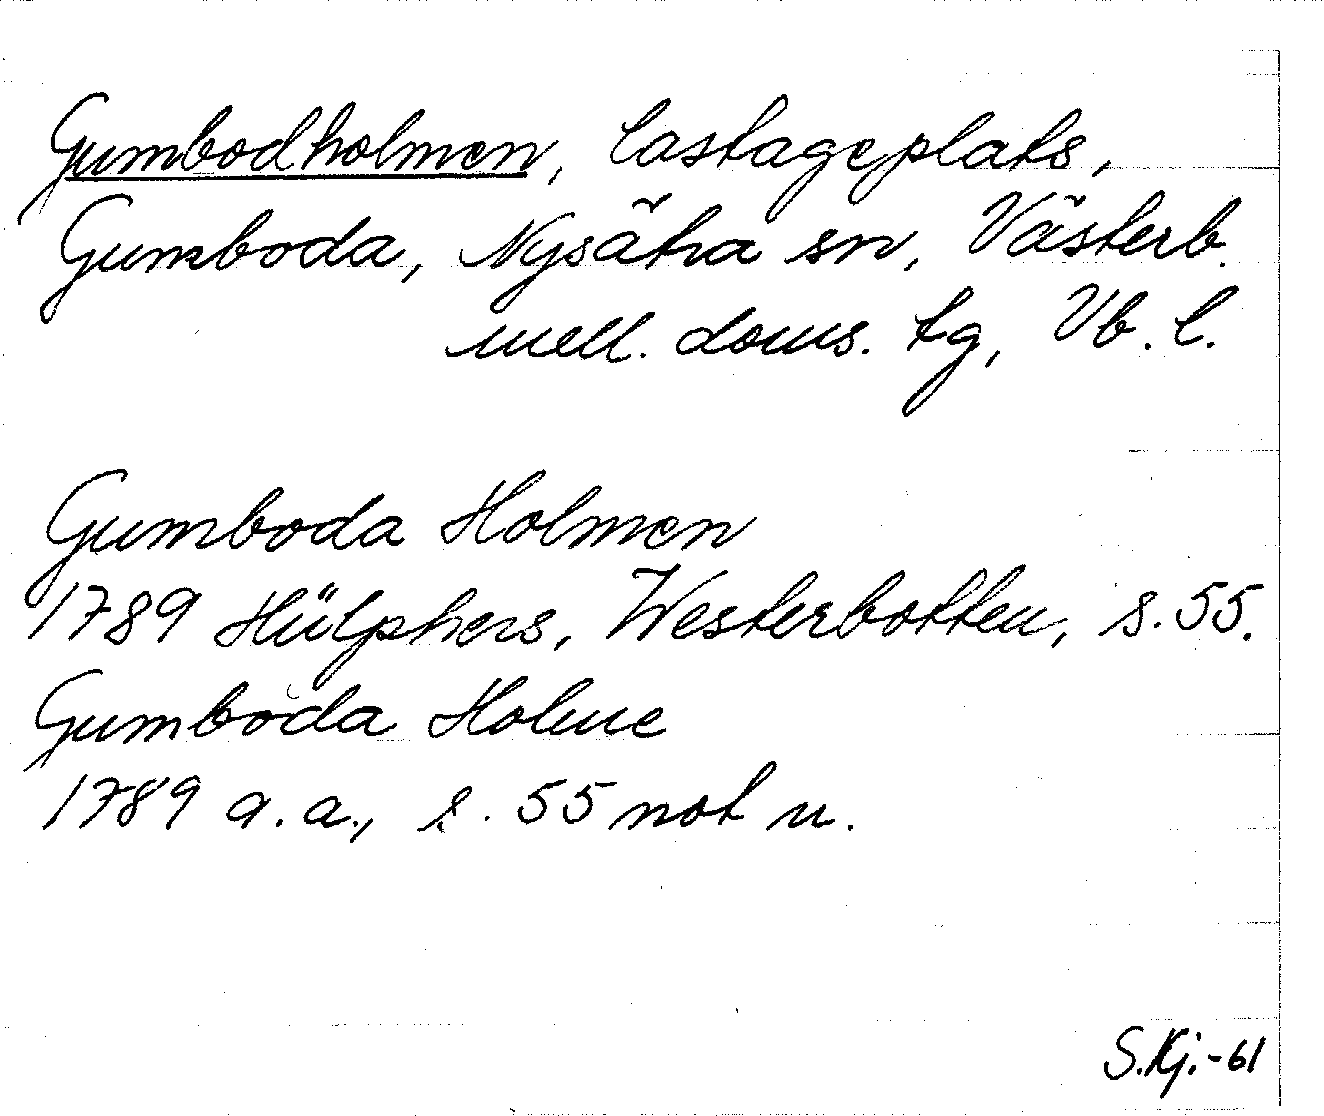 Gumbodholmen, lastageplats,
Gumboda, Nysätra sn, Västerb.
mell. doms. tg, Vb. l.
Gumboda Holmen
1789 Hülphers, Westerbotten, s. 55.
Gumboda Holme
1789 a.a., s. 55 not u.
S.Kj.-61